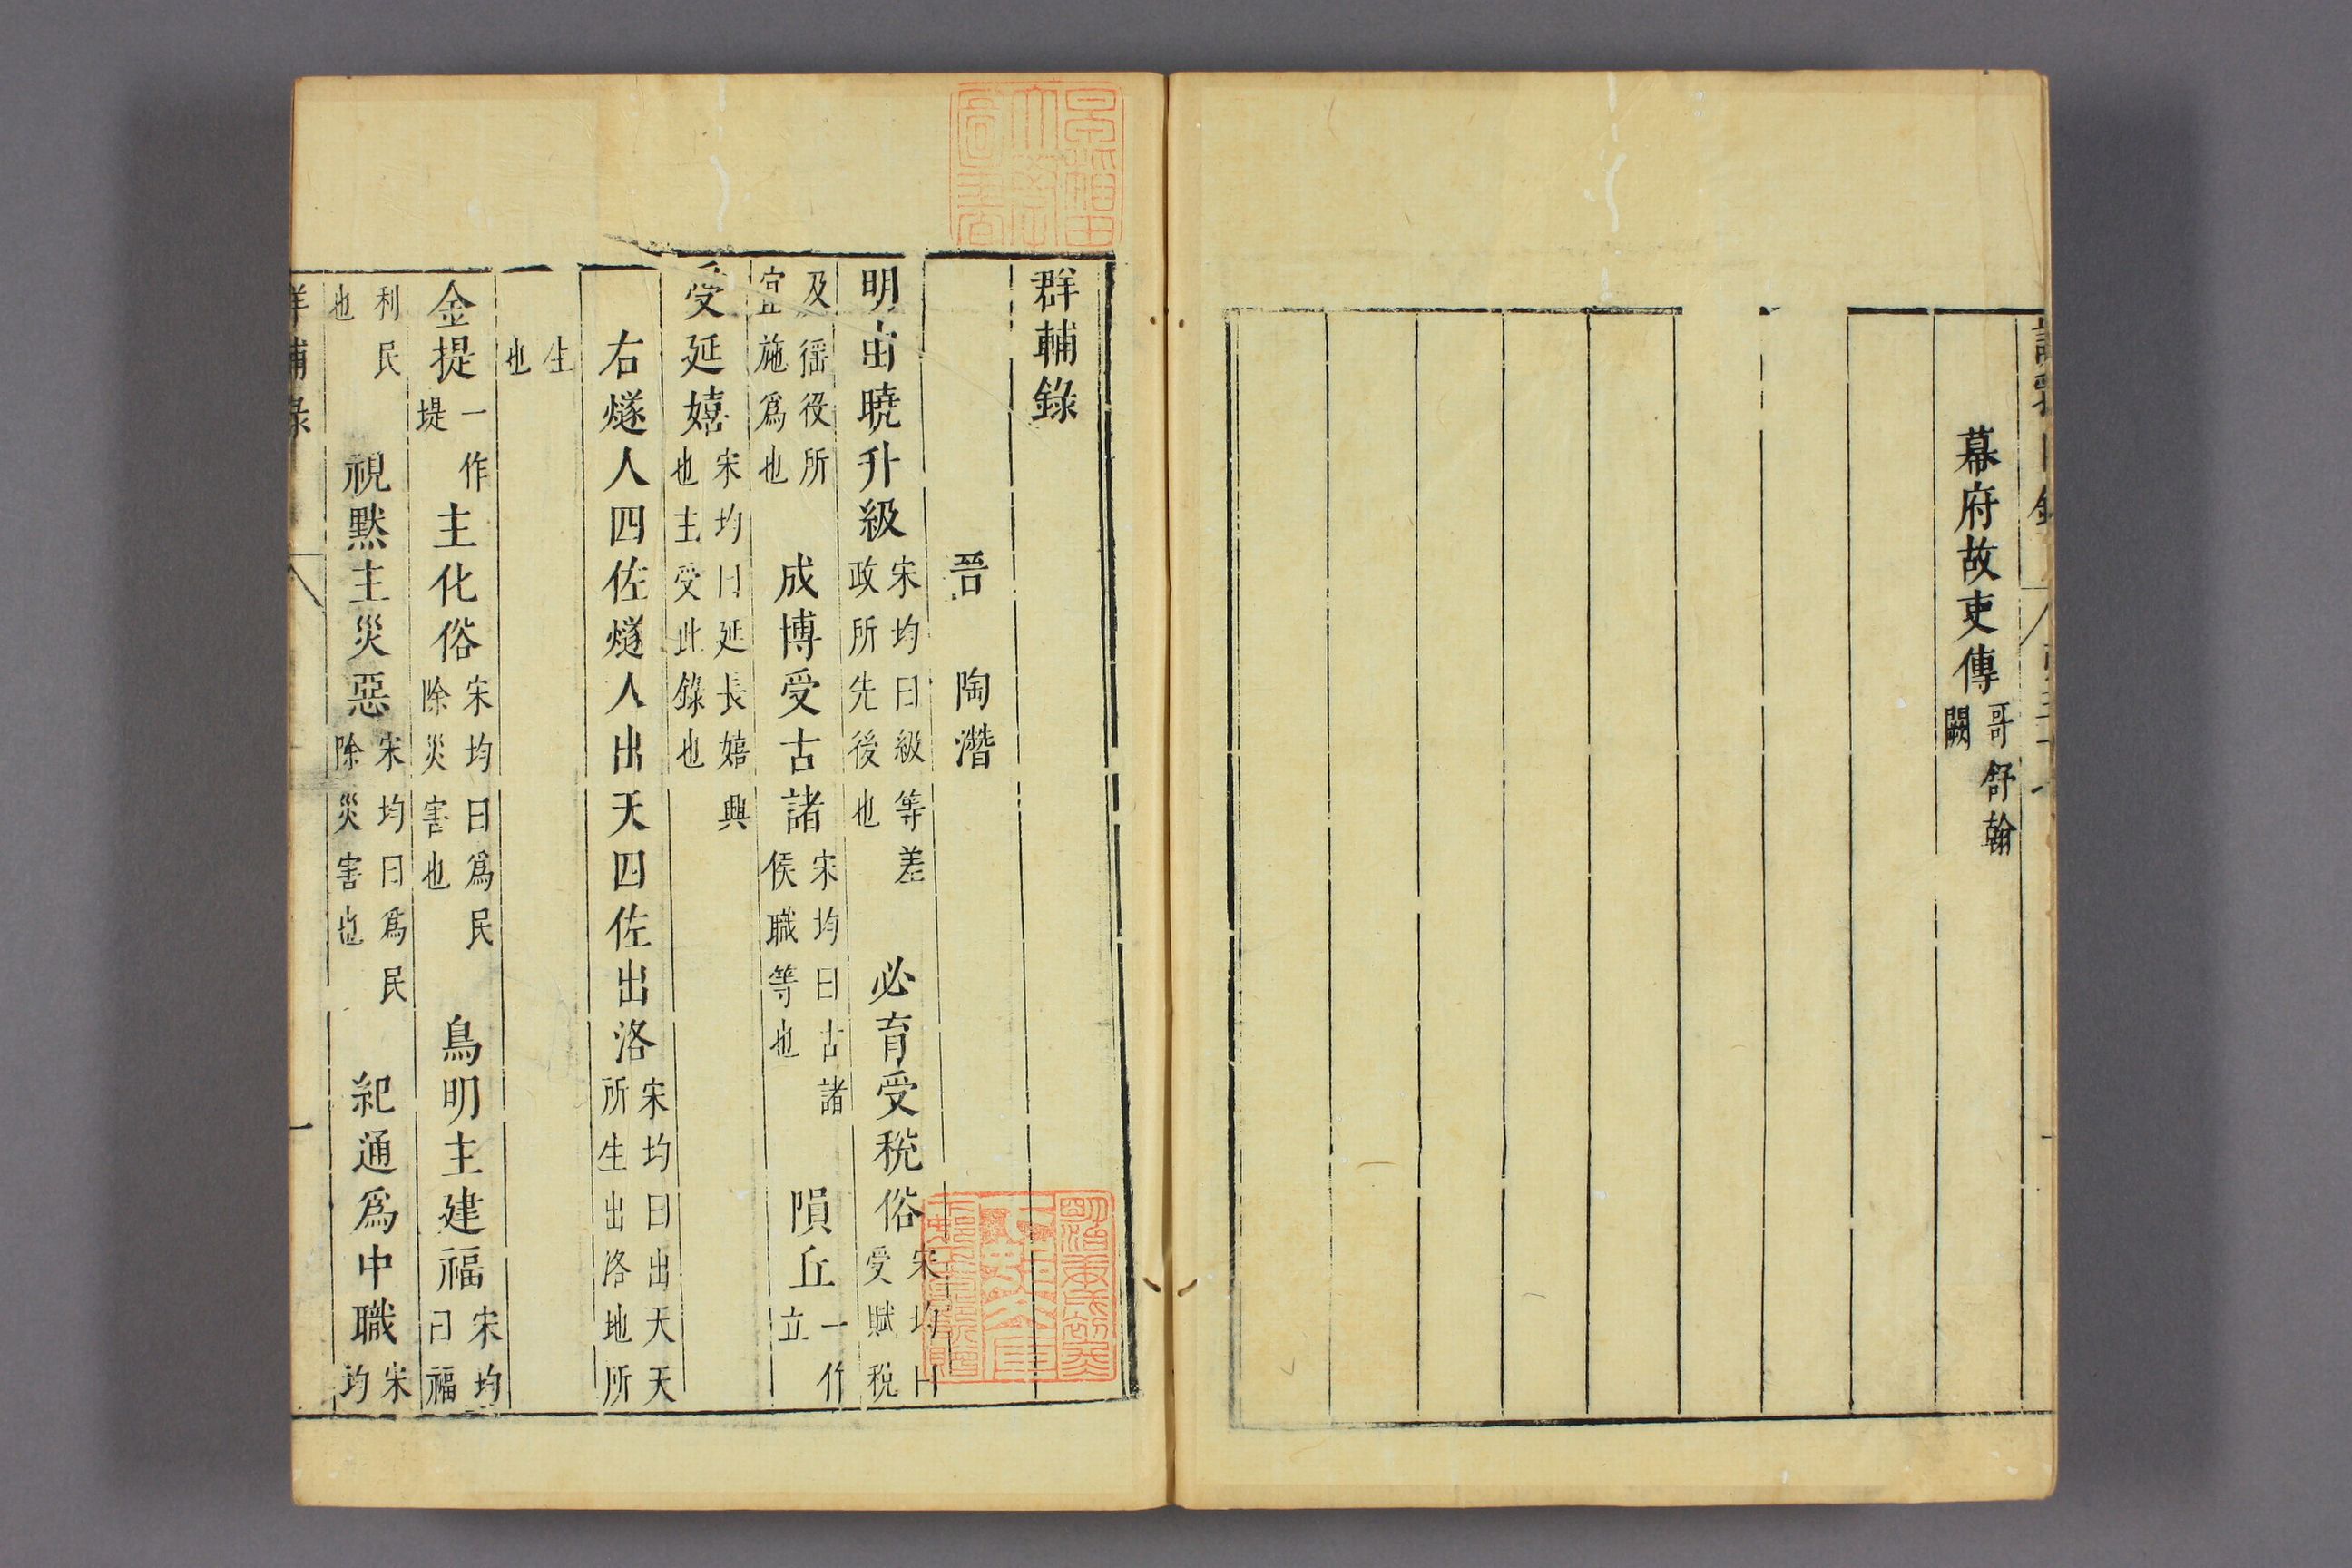 幕府故吏傳哥舒翰闕
群輔錄
晉陶潛
明由曉升級宋均曰級等差政所先後也必育受稅俗宋均曰受賦稅
及徭役所宜施爲也成博受古諸宋均曰古諸侯職等也隕丘一作立
受延嬉宋均曰延長嬉興也主受此錄也
右燧人四佐燧人出天四佐出洛宋均曰出天天所生出洛地所
生也
金提一作堤主化俗宋均曰爲民除災害也鳥明主建福宋均曰福
利民也視默主災惡宋均曰爲民除災害也紀通爲中職宋均
群輔錄
一